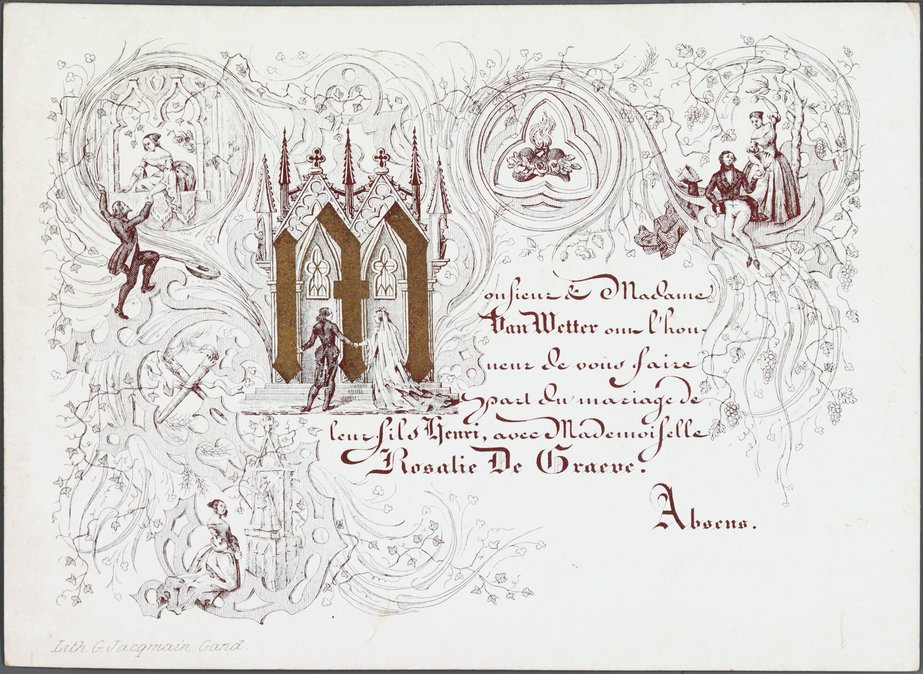 Monsieur & Madame
Van Wetter ont l'hon-
neur de vous faire
part du mariage de
leur fils Henri, avec Mademoiselle
Rosalie De Graeve.
Absens.
Lith. G. Jacqmain, Gand